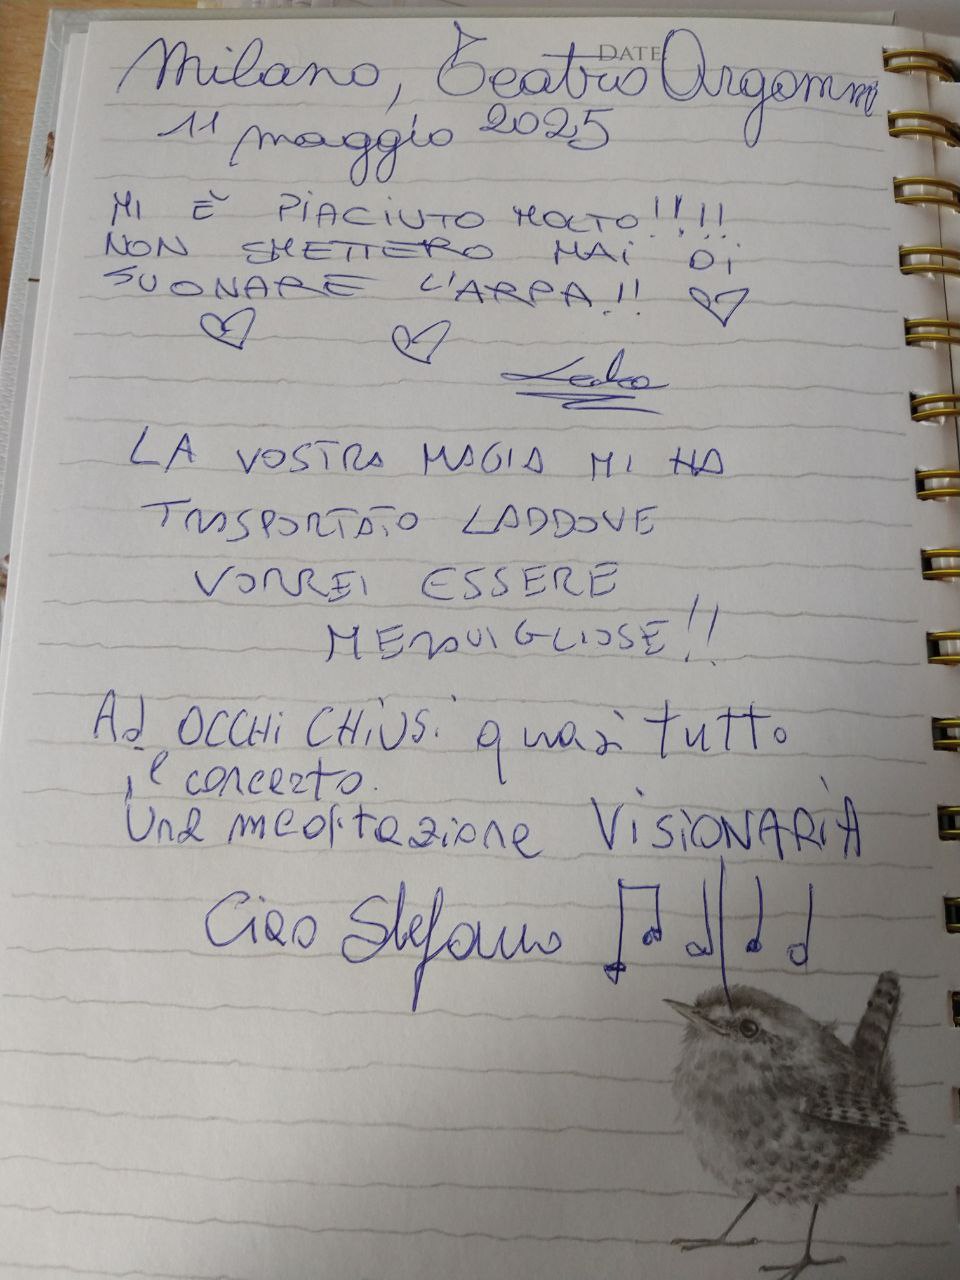 DATE
Milano, Teatro Argomm
11 maggio 2025
MI È PIACIUTO MOLTO!!!!
NON SMETTERO MAI DI
SUONARE L'ARPA!!
LA VOSTRA MAGIA MI HA
TRASPORTATO LADDOVE
VORREI ESSERE
MERAVIGLIOSE!!
Ad OCCHI CHIUSi quasi tutto
il concerto.
Una meditazione VISIONARIA
Ciao Stefano